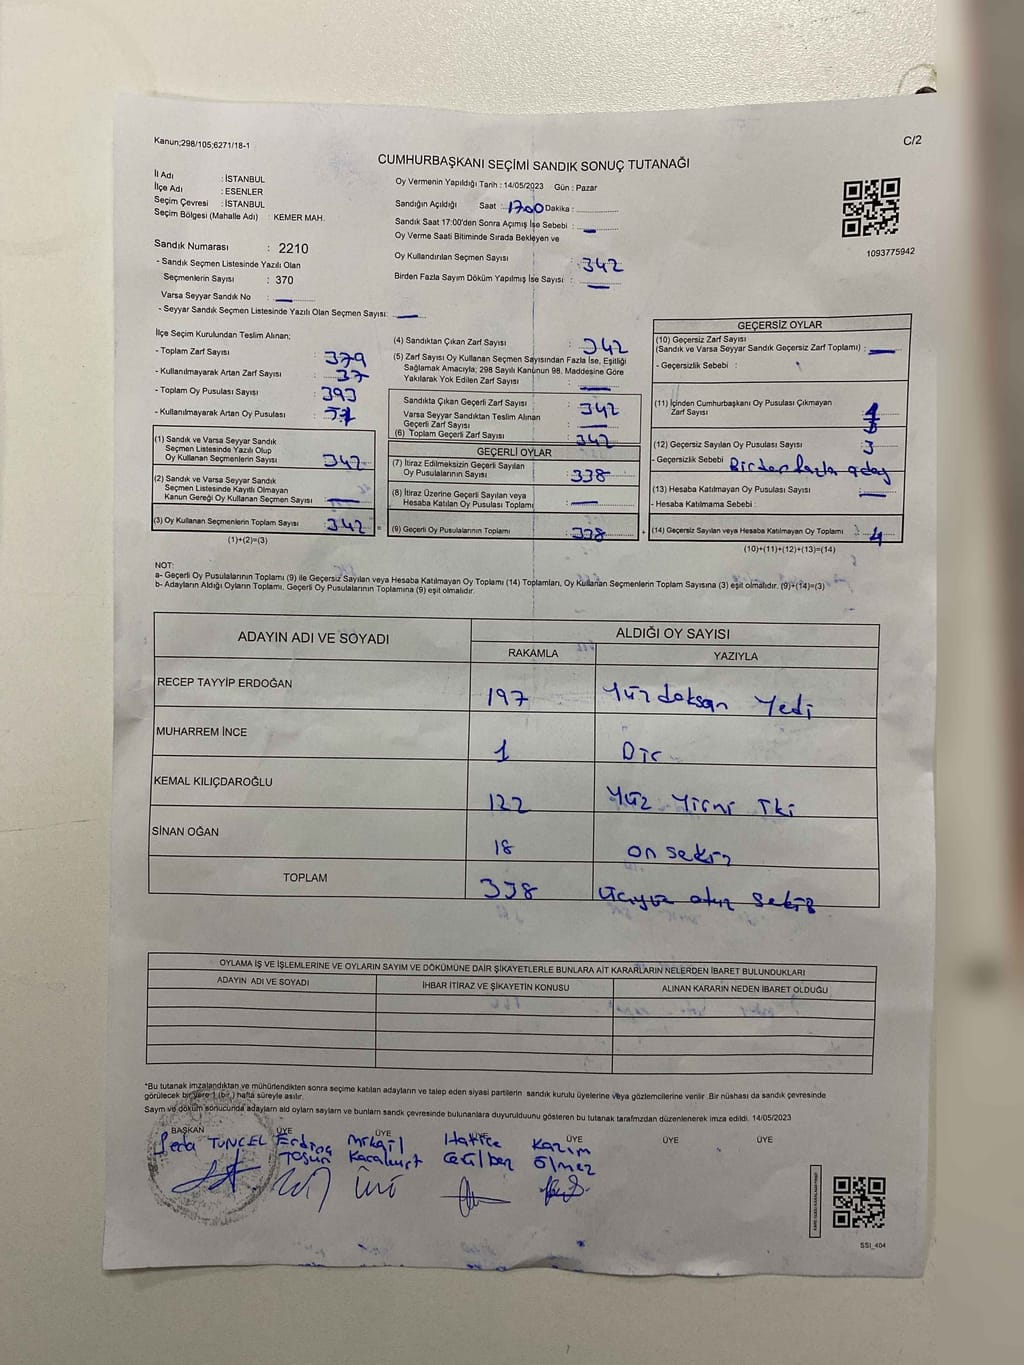 Kanun;298/105;6271/18-1
C/2
CUMHURBAŞKANI SEÇİMİ SANDIK SONUÇ TUTANAĞI
İl Adı : İSTANBUL
İlçe Adı : ESENLER
Seçim Çevresi : İSTANBUL
Seçim Bölgesi (Mahalle Adı) : KEMER MAH.
Sandık Numarası : 2210
- Sandık Seçmen Listesinde Yazılı Olan
Seçmenlerin Sayısı : 370
Varsa Seyyar Sandık No : —
- Seyyar Sandık Seçmen Listesinde Yazılı Olan Seçmen Sayısı: —
Oy Vermenin Yapıldığı Tarih : 14/05/2023 Gün : Pazar
Sandığın Açıldığı Saat : 1700 Dakika :
Sandık Saat 17:00'den Sonra Açımış İse Sebebi : —
Oy Verme Saati Bitiminde Sırada Bekleyen ve
Oy Kullandırılan Seçmen Sayısı : 342
Birden Fazla Sayım Döküm Yapılmış İse Sayısı : —
1093775942
İlçe Seçim Kurulundan Teslim Alınan;
- Toplam Zarf Sayısı : 379
- Kullanılmayarak Artan Zarf Sayısı : 37
- Toplam Oy Pusulası Sayısı : 393
- Kullanılmayarak Artan Oy Pusulası :
(1) Sandık ve Varsa Seyyar Sandık
Seçmen Listesinde Yazılı Olup
Oy Kullanan Seçmenlerin Sayısı : 342
(2) Sandık ve Varsa Seyyar Sandık
Seçmen Listesinde Kayıtlı Olmayan
Kanun Gereği Oy Kullanan Seçmen Sayısı : —
(3) Oy Kullanan Seçmenlerin Toplam Sayısı : 342
(1)+(2)=(3)
(4) Sandıktan Çıkan Zarf Sayısı : 342
(5) Zarf Sayısı Oy Kullanan Seçmen Sayısından Fazla İse, Eşitliği
Sağlamak Amacıyla; 298 Sayılı Kanunun 98. Maddesine Göre
Yakılarak Yok Edilen Zarf Sayısı : —
Sandıkta Çıkan Geçerli Zarf Sayısı : 342
Varsa Seyyar Sandıktan Teslim Alınan
Geçerli Zarf Sayısı : —
(6) Toplam Geçerli Zarf Sayısı : 342
GEÇERLİ OYLAR
(7) İtiraz Edilmeksizin Geçerli Sayılan
Oy Pusulalarının Sayısı : 338
(8) İtiraz Üzerine Geçerli Sayılan veya
Hesaba Katılan Oy Pusulası Toplamı : —
(9) Geçerli Oy Pusulalarının Toplamı : 338
GEÇERSİZ OYLAR
(10) Geçersiz Zarf Sayısı
(Sandık ve Varsa Seyyar Sandık Geçersiz Zarf Toplamı) : —
- Geçersizlik Sebebi :
(11) İçinden Cumhurbaşkanı Oy Pusulası Çıkmayan
Zarf Sayısı : 1
(12) Geçersiz Sayılan Oy Pusulası Sayısı : 3
- Geçersizlik Sebebi Birden fazla aday
(13) Hesaba Katılmayan Oy Pusulası Sayısı : —
- Hesaba Katılmama Sebebi :
(14) Geçersiz Sayılan veya Hesaba Katılmayan Oy Toplamı : 4
(10)+(11)+(12)+(13)=(14)
NOT:
a- Geçerli Oy Pusulalarının Toplamı (9) ile Geçersiz Sayılan veya Hesaba Katılmayan Oy Toplamı (14) Toplamları, Oy Kullanan Seçmenlerin Toplam Sayısına (3) eşit olmalıdır. (9)+(14)=(3)
b- Adayların Aldığı Oyların Toplamı, Geçerli Oy Pusulalarının Toplamına (9) eşit olmalıdır.
ADAYIN ADI VE SOYADI ALDIĞI OY SAYISI
RAKAMLA YAZIYLA
RECEP TAYYİP ERDOĞAN 197 Yüzdoksan Yedi
MUHARREM İNCE 1 Bir
KEMAL KILIÇDAROĞLU 122 Yüz Yirmi iki
SİNAN OĞAN 18 on sekiz
TOPLAM 338 üçyüz otuz sekiz
OYLAMA İŞ VE İŞLEMLERINE VE OYLARIN SAYIM VE DÖKÜMÜNE DAİR ŞİKAYETLERLE BUNLARA AİT KARARLARIN NELERDEN İBARET BULUNDUKLARI
ADAYIN ADI VE SOYADI İHBAR İTİRAZ VE ŞİKAYETİN KONUSU ALINAN KARARIN NEDEN İBARET OLDUĞU
*Bu tutanak imzalandıktan ve mühürlendikten sonra seçime katılan adayların ve talep eden siyasi partilerin sandık kurulu üyelerine veya gözlemcilerine verilir. Bir nüshası da sandık çevresinde
görülecek bir yere 1 (bir ) hafta süreyle asılır.
Sayım ve döküm sonucunda adayların ald oyların sayların ve bunların sandk çevresinde bulunanlara duyurulduunu gösteren bu tutanak tarafmzdan düzenlenerek imza edildi. 14/05/2023
BAŞKAN ÜYE ÜYE ÜYE ÜYE ÜYE ÜYE
Seda TUNCEL Erdinç Mikail Hatice Kazım
Tosun Karakurt Ölmez
SSI_404